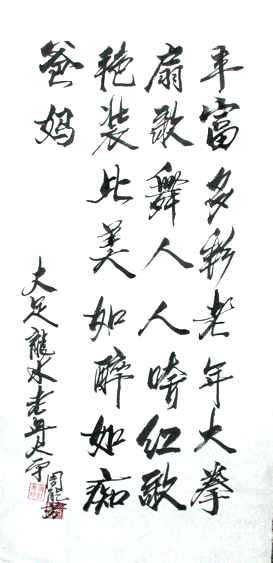 丰富多彩老年大拳
扇歌舞人人唱红歌
艳装比美如醉如痴
爸妈
大足龍水老年大学
周